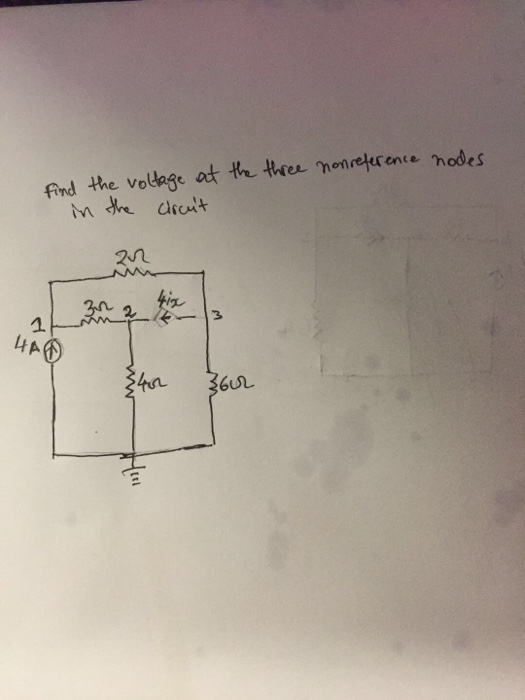 Find the voltage at the three nonreference nodes
in the circuit
2Ω
3Ω 2 4ix
1 3
4A
4Ω 6Ω